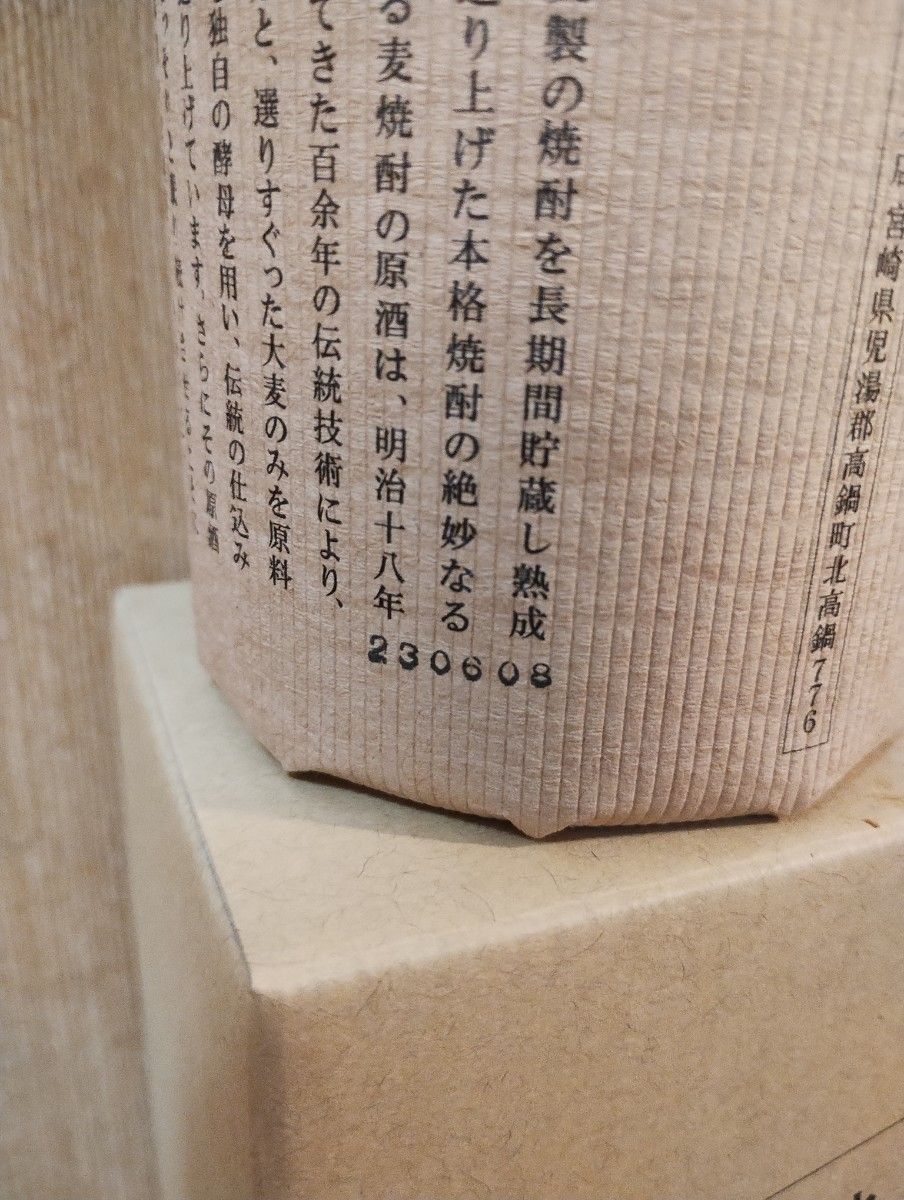 店 宮崎県児湯郡高鍋町北高鍋776
製の焼酎を長期間貯蔵し熟成
り上げた本格焼酎の絶妙なる
る麦焼酎の原酒は、明治十八年
てきた百余年の伝統技術により、
と、選りすぐった大麦のみを原料
独自の酵母を用い、伝統の仕込み
り上げています。さらにその原酒
230608